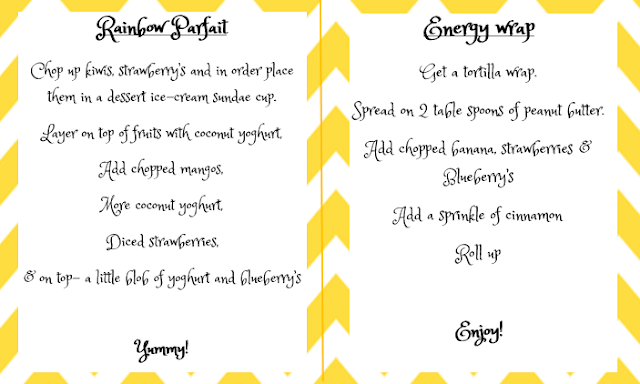 Rainbow Parfait
Chop up kiwis, strawberry's and in order place
them in a dessert ice-cream sundae cup.
Layer on top of fruits with coconut yoghurt,
Add chopped mangos,
More coconut yoghurt,
Diced strawberries,
& on top- a little blob of yoghurt and blueberry's
Yummy!
Energy wrap
Get a tortilla wrap.
Spread on 2 table spoons of peanut butter.
Add chopped banana, strawberries &
Blueberry's
Add a sprinkle of cinnamon
Roll up
Enjoy!